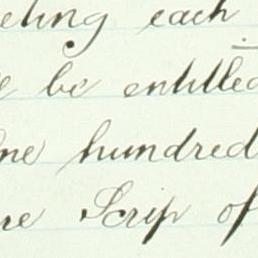 eting each
be entitled
One hundred
re Scrip of